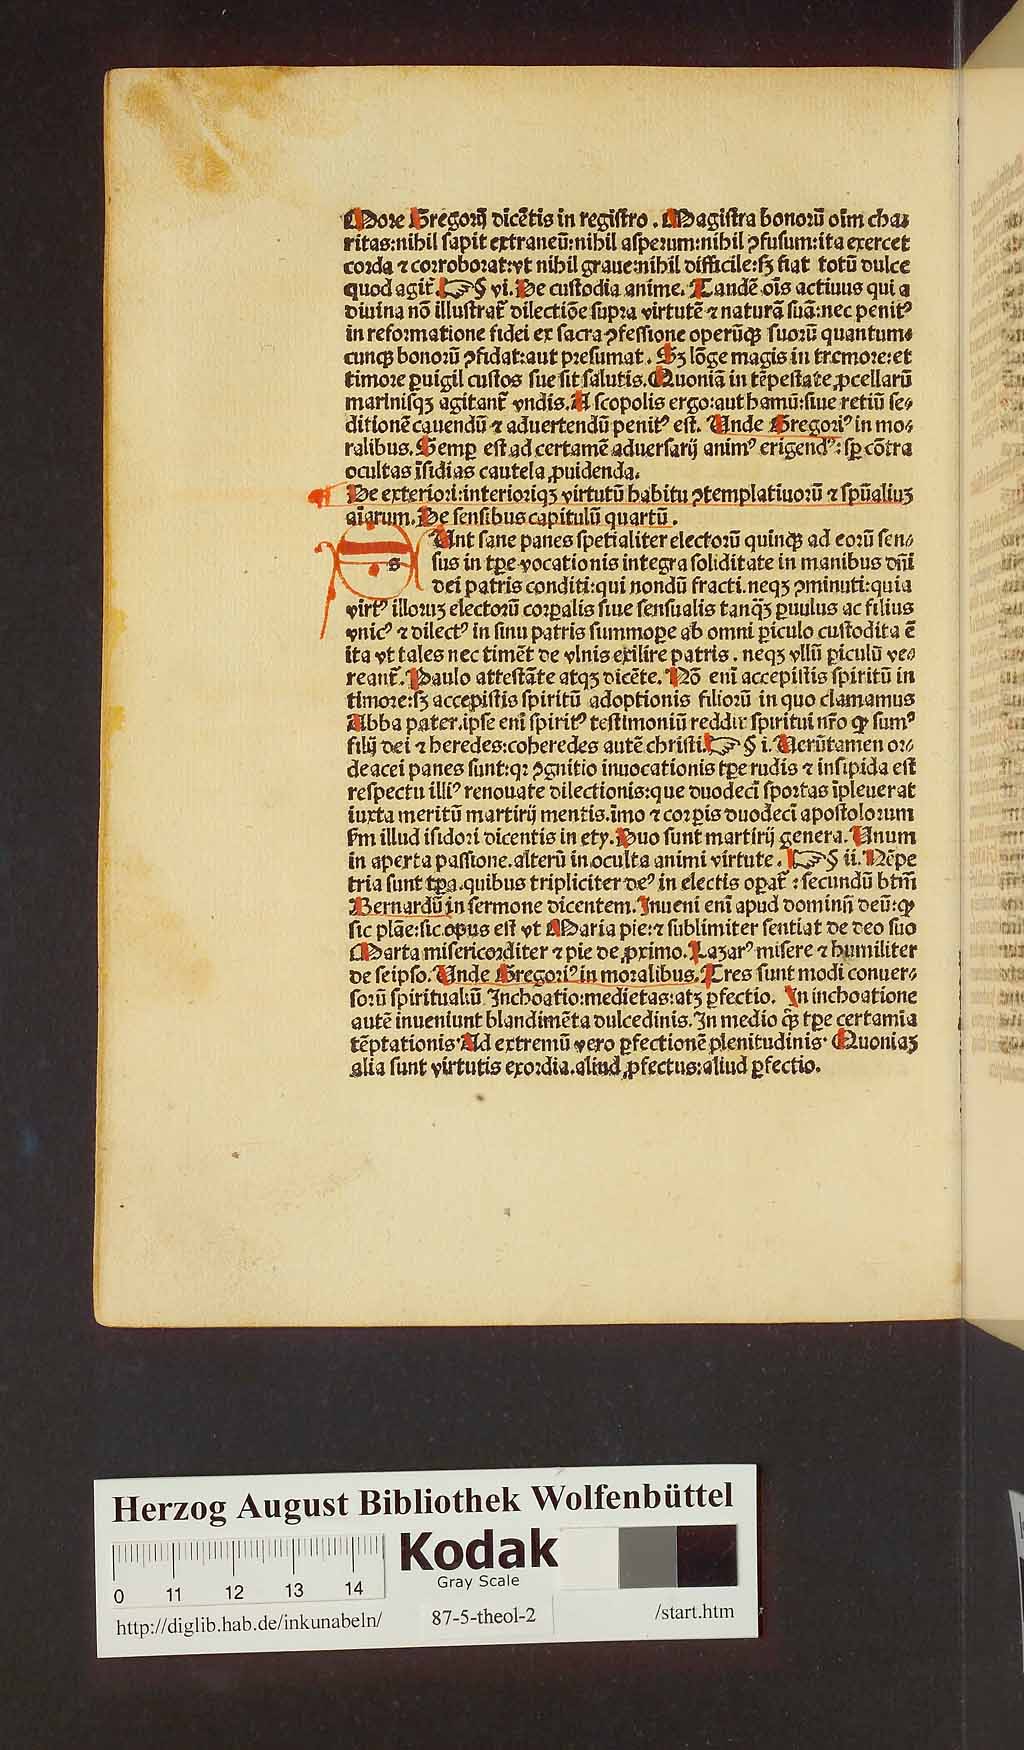 More Gregorij dicẽtis in regiſtro. Magiſtra bonorũ oĩm cha⸗
ritas:nihil ſapit extraneũ:nihil aſperum:nihil ꝯfuſum:ita exercet
corda ⁊ corroborat:vt nihil graue:nihil difficile:ſꝫ fiat totũ dulce
quod agit᷑.☞§ vi.De cuſtodia anime. Tandẽ oĩs actiuus qui a
diuina nõ illuſtrat᷑ dilectiõe ſupra virtutẽ ⁊ naturã ſuã:nec penitꝰ
in reformatione fidei ex ſacra ꝯfeſſione operũqꝫ ſuorũ quantum⸗
cunqꝫ bonorũ ꝯfidat:aut preſumat. Sꝫ lõge magis in tremore:et
timore ꝑuigil cuſtos ſue ſit ſalutis.Quoniã in tẽpeſtate ꝓcellarũ
marinisqꝫ agitant᷑ vndis.A ſcopolis ergo:aut hamũ:ſiue retiũ ſe⸗
ditionẽ cauendũ ⁊ aduertendũ penitꝰ eſt. Unde Gregoriꝰ in mo⸗
ralibus.Semꝑ eſt ad certamẽ aduerſarij animꝰ erigendꝰ:ſꝑ cõtra
ocultas ĩſidias cautela ꝓuidenda.
De exteriori:interioriqꝫ virtutũ habitu ꝯtemplatiuorũ ⁊ ſpũaliuꝫ
aĩarum.De ſenſibus capitulũ quartũ.
s Unt ſane panes ſpetialiter electorũ quinqꝫ ad eorũ ſen⸗
ſus in tꝑe vocationis integra ſoliditate in manibus dñi
dei patris conditi:qui nondũ fracti.neqꝫ ꝯminuti:quia
virtꝰ illoruꝫ electorũ corꝑalis ſiue ſenſualis tanq̃ꝫ ꝑuulus ac filius
vnicꝰ ⁊ dilectꝰ in ſinu patris ſummoꝑe ab omni ꝑiculo cuſtodita ẽ
ita vt tales nec timẽt de vlnis exilire patris. neqꝫ vllũ ꝑiculũ ve⸗
reant᷑.Paulo atteſtãte atqꝫ dicẽte.Nõ enĩ accepiſtis ſpiritũ in
timore:ſꝫ accepiſtis ſpiritũ adoptionis filiorũ in quo clamamus
Abba pater.ipſe enĩ ſpiritꝰ teſtimoniũ reddit ſpiritui nr̃o ꝙ ſumꝰ
filij dei ⁊ heredes:coheredes autẽ chriſti.☞§ i.Uerũtamen or⸗
deacei panes ſunt:qꝛ ꝯgnitio inuocationis tꝑe rudis ⁊ inſipida eſt
reſpectu illiꝰ renouate dilectionis:que duodecĩ ſportas ĩpleuerat
iuxta meritũ martirij mentis.ĩmo ⁊ corꝑis duodecĩ apoſtolorum
ſm̃ illud iſidori dicentis in ety.Duo ſunt martirij genera.Unum
in aperta paſſione.alterũ in oculta animi virtute. ☞§ ii.Nẽpe
tria ſunt tꝑa.quibus tripliciter deꝰ in electis oꝑat᷑:ſecundũ btm̃
Bernardũ in ſermone dicentem.Inueni enĩ apud dominũ deũ:ꝙ
ſic plãe:ſic opus eſt vt Maria pie:⁊ ſublimiter ſentiat de deo ſuo
Marta miſericorditer ⁊ pie de ꝓximo.Lazarꝰ miſere ⁊ humiliter
de ſeipſo.Unde Gregoriꝰ in moralibus.Tres ſunt modi conuer⸗
ſorũ ſpiritualiũ Inchoatio:medietas:atqꝫ ꝑfectio. In inchoatione
autẽ inueniunt blandimẽta dulcedinis.In medio q̃ꝫ tꝑe certamĩa
tẽptationis.Ad extremũ vero ꝑfectionẽ plenitudinis. Quoniaꝫ
alia ſunt virtutis exordia.aliud ꝓfectus:aliud ꝑfectio.
Herzog August Bibliothek Wolfenbüttel
Kodak
Gray Scale
0 11 12 13 14
http://diglib.hab.de/inkunabeln/ 87-5-theol-2 /start.htm